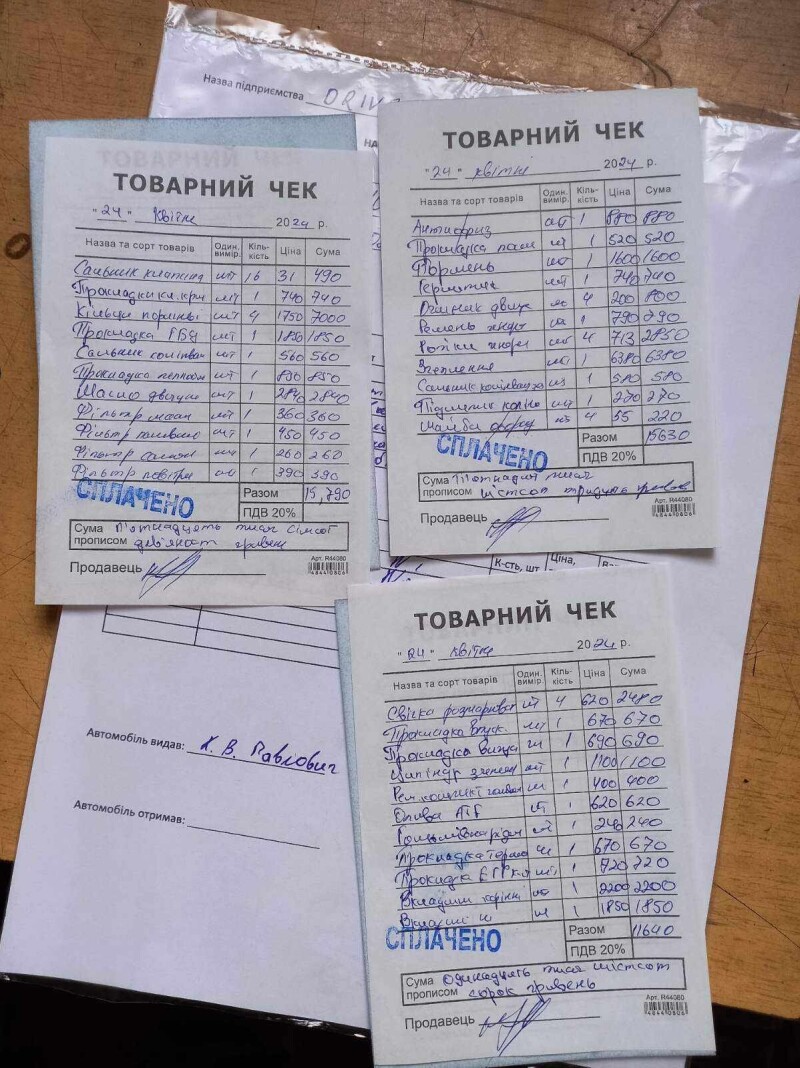 Назва підприємства DRIV
НА
ТОВАРНИЙ ЧЕК
"24" Квітня 2024 р.
Назва та сорт товарів Один. вимір. Кіль-кість Ціна Сума
Сальник клапана шт 16 31 490
Прокладки к. кри шт 1 740 740
Кільця поршньві шт 4 1750 7000
Прокладка ГБЦ шт 1 1850 1850
Сальник колінвал шт 1 560 560
Прокладка шт 1 850 850
Масло двигуна шт 1 2840 2840
Фільтр масл шт 1 360 360
Фільтр паливний шт 1 450 450
Фільтр салона шт 1 260 260
Фільтр повітря шт 1 390 390
СПЛАЧЕНО
Разом 15,790
ПДВ 20%
Сума прописом П'ятнадцять тисяч сімсот
дев'яност гривень
Арт. R44080
Продавець
4844'0806
ТОВАРНИЙ ЧЕК
"24" квітня 2024 р.
Назва та сорт товарів Один. вимір. Кіль-кість Ціна Сума
Антифриз шт 1 880 880
Прокладка шт 1 520 520
Поршень шт 1 1600 1600
Герметик шт 1 740 740
Очисник двигу шт 4 200 800
Ремень шт 1 790 790
Ролики шт 4 713 2850
Зчеплення шт 1 6380 6380
Сальник колінвала шт 1 580 580
Підшипник колін шт 1 270 270
Шайба шт 4 55 220
СПЛАЧЕНО
Разом 15630
ПДВ 20%
Сума прописом П'ятнадцять тисяч
шістсот тридцять гривень
Арт. R44080
Продавець
4844'0806
К-сть, шт Ціна,
ТОВАРНИЙ ЧЕК
"24" Квітня 2024 р.
Назва та сорт товарів Один. вимір. Кіль-кість Ціна Сума
Свічка розжарюван шт 4 620 2480
Прокладка впуск. шт 1 670 670
Прокладка випуск шт 1 690 690
Циліндр зчеплен шт 1 1100 1100
Рем. комплект шт 1 400 400
Олива ATF шт 1 620 620
Гальмівна рідин шт 1 240 240
Прокладка термо шт 1 670 670
Прокладка ЕГР кл шт 1 720 720
Вкладиши корінні шт 1 2200 2200
Вкладиші ш 1 1850 1850
СПЛАЧЕНО
Разом 11640
ПДВ 20%
Сума прописом Одинадцять тисяч шістсот
сорок гривень
Арт. R44080
Продавець
4844'0806
Автомобіль видав: К. В. Павлович
Автомобіль отримав: